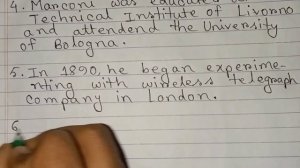 4. Marconi was educated
Technical Institute of Livorno
and attendend the University
of Bologna.
5. In 1890, he began experime-
nting with wireless telegraph
company in London.
6